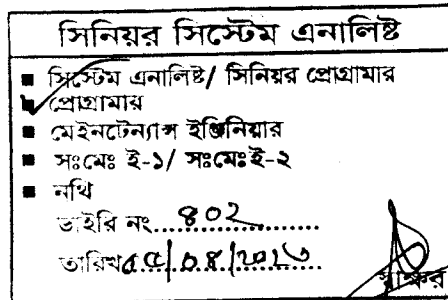 সিনিয়র সিস্টেম এনালিষ্ট
■ সিস্টেম এনালিষ্ট/ সিনিয়র প্রোগ্রামার
■ প্রোগ্রামার
■ মেইনটেন্যান্স ইঞ্জিনিয়ার
■ সঃমেঃ ই-১/ সঃমেঃই-২
■ নথি
ডাইরি নং.....৪০২.....
তারিখ
স্বাক্ষর